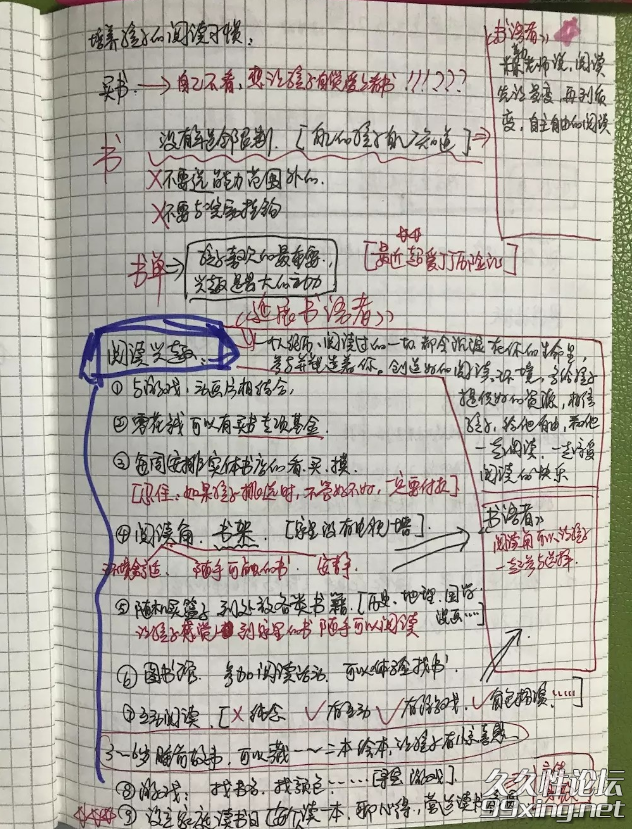 培养孩子的阅读习惯:
买书 → 自己不看,想让孩子自觉爱上读书!!!???
书 没有年龄限制.[自己的孩子自己知道]
×不要选能力范围外的.
×不要与 挂钩
书单 → 孩子喜欢的最重要,
兴趣是最大的动力
[最近超爱 历险记]
《书语者》
老师说,阅读
先让量变,再到质
变,自主自由的阅读
《 书语者》
阅读兴趣:
一切经历、阅读过的一切都会沉淀在你的生命里,
并塑造着你。创造好的阅读环境,多给孩子
提供好的资源,相信
孩子,给他自由,和他
一起阅读,一起享受
阅读的快乐
① 与游戏,动画片相结合,
② 零花钱可以有买书专项基金
③ 每周安排实体书店的看、买、摸
[原住:如果孩子挑选时,不管好不好,一定要付款]
④ 阅读角、书架、[家里没有电视墙].
环境舒适、随手可触的书、安静
《书语者》
阅读角可以让孩子
一起参与选择.
⑤ 随机 篮子,到处放各类书籍.[历史、地理、国学
漫画……]
让孩子感觉到家里的书随手可以阅读
⑥ 图书馆、参加阅读活动,可以体验找书.
⑦ 互动阅读.[×纯念 ✓有互动 ✓有游戏,✓角色扮演……]
3~6岁睡前故事,可以藏一~二本绘本,让孩子有小惊喜感.
⑧ 游戏:找书名,找颜色……[寻宝游戏].
⑨ 设立家庭读书日[每人读一本,聊心得,营造读书氛围
久久性论坛
99xing.net